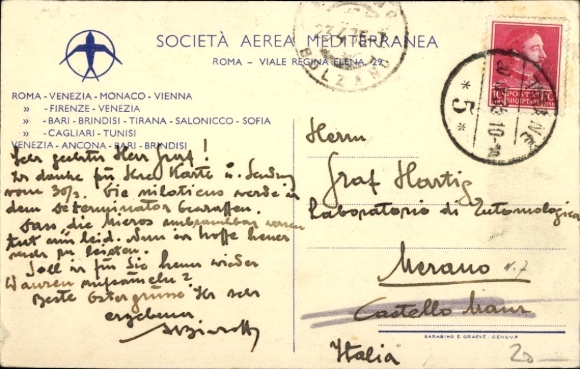 SOCIETÀ AEREA MEDITERRANEA
ROMA - VIALE REGINA ELENA, 29
ROMA - VENEZIA - MONACO - VIENNA
» - FIRENZE - VENEZIA
» - BARI - BRINDISI - TIRANA - SALONICCO - SOFIA
» - CAGLIARI - TUNISI
VENEZIA - ANCONA - BARI - BRINDISI
Sehr geehrter Herr Graf!
Ich danke für Ihre Karte u. Sendung
vom 30/3. Die niloticus werde ich
dem Determinator
Dass die Micros unbrauchbar waren
tut mir leid. Nun ich hoffe heuer
mehr zu leisten.
Soll ich für Sie heuer wieder
Wanzen
Beste Ostergrüsse Ihr sehr
ergebener
BOLZANO
POSTA
SHQIPTARE
TIRANE
* 5 *
Herrn
Graf Hartig
Laboratorio di Entomologia
Merano
Castello Maur
Italia
SARABINO E GRAEVE - GENOVA
20